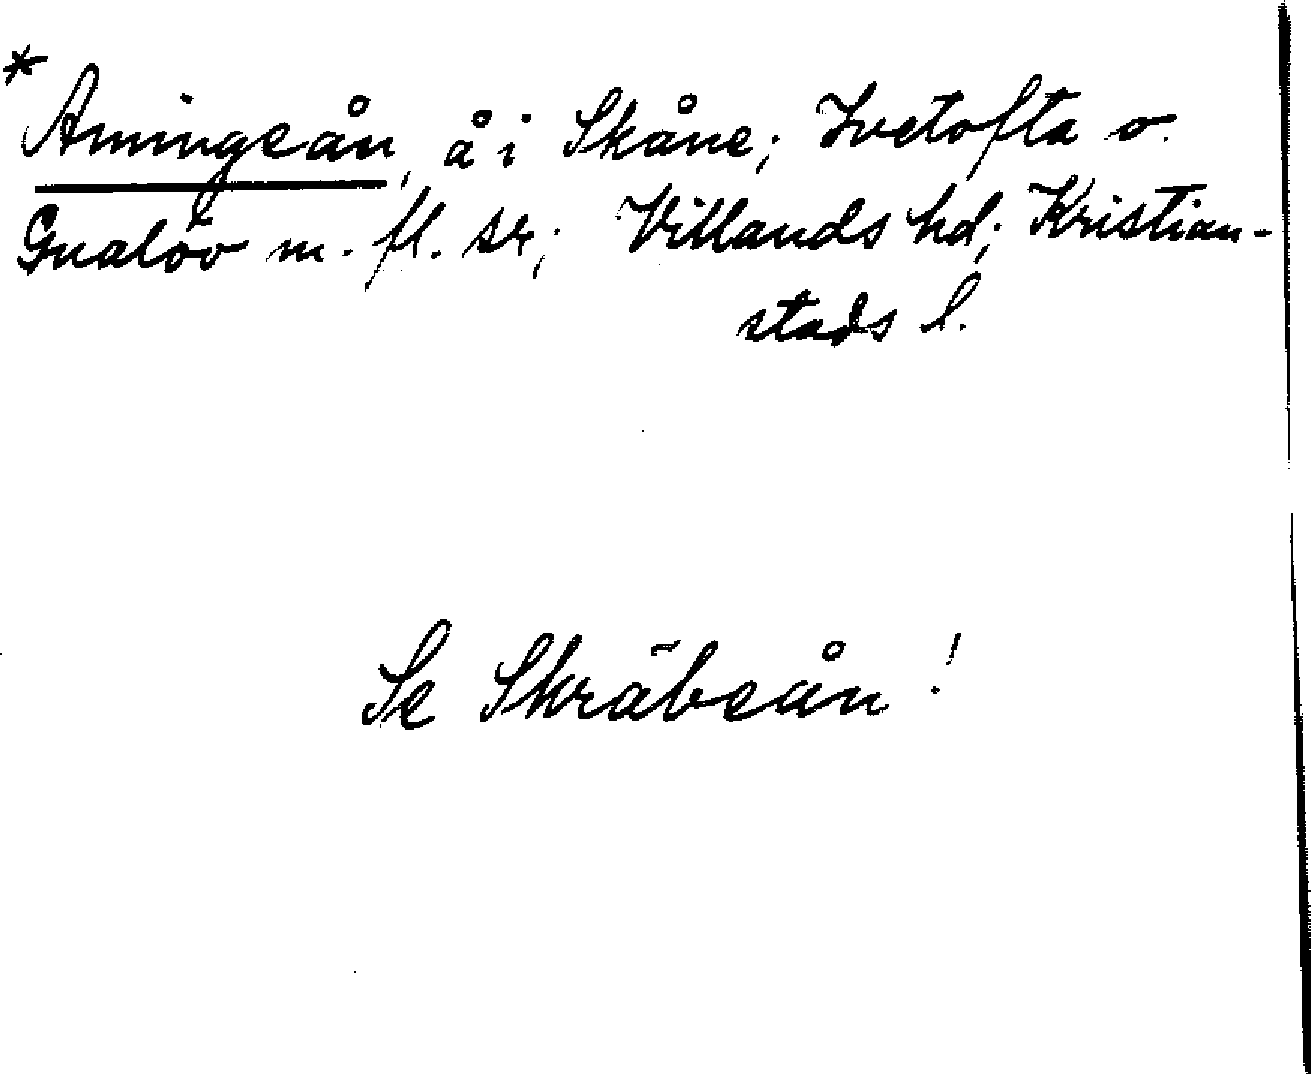 *
Amingeån, å i Skåne; Ivetofta o.
Gualöv m. fl. sr; Villands hd; Kristian-
stads l.
Se Skräbeån!